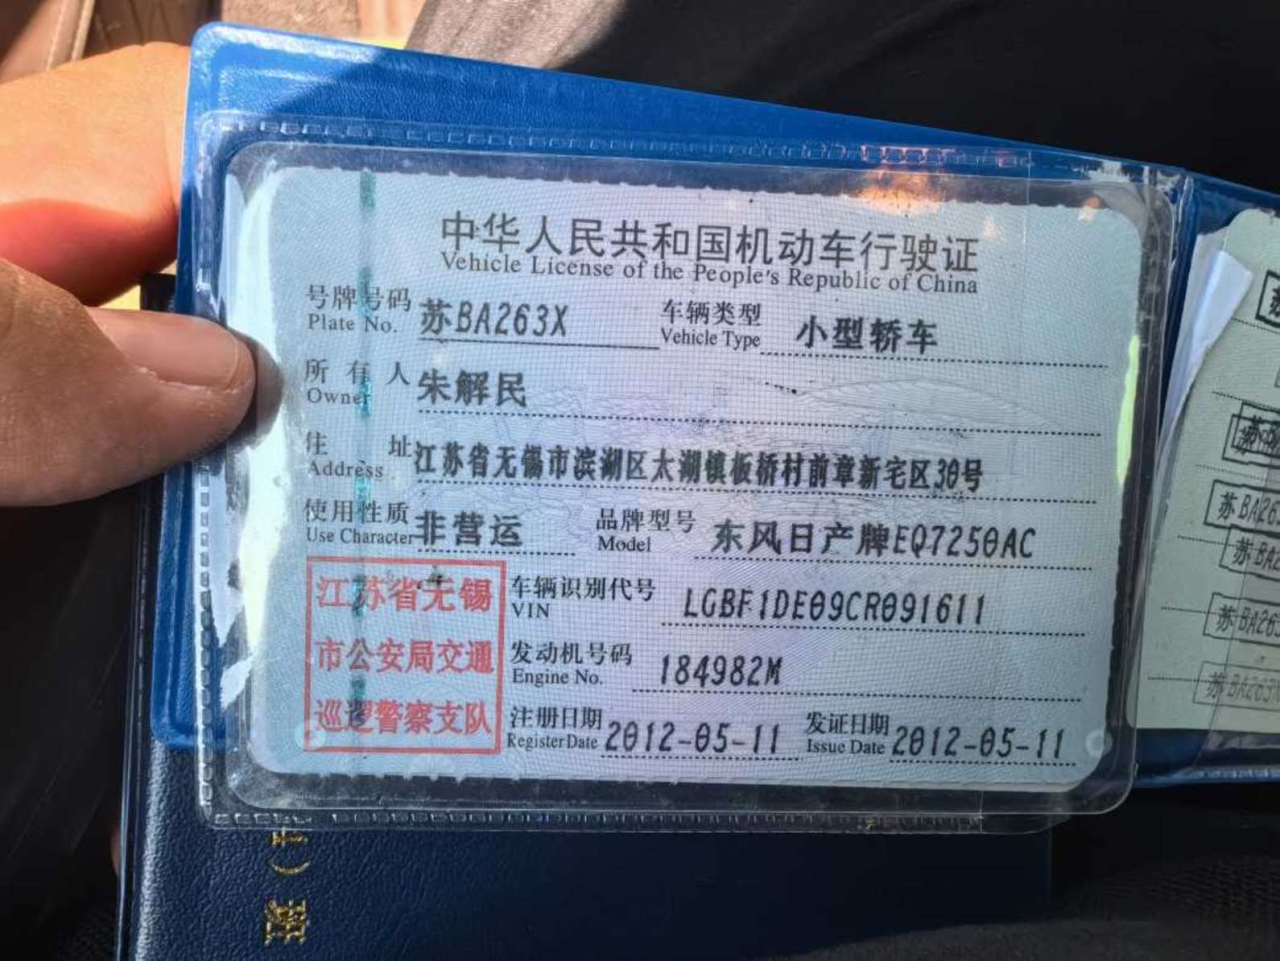 中华人民共和国机动车行驶证
Vehicle License of the People's Republic of China
号牌号码 苏BA263X 车辆类型 小型轿车
Plate No. Vehicle Type
所有人 朱解民
Owner
住址 江苏省无锡市滨湖区太湖镇板桥村前章新宅区30号
Address
使用性质 非营运 品牌型号 东风日产牌EQ7250AC
Use Character Model
江苏省无锡
市公安局交通
巡逻警察支队
车辆识别代号 LGBF1DE09CR091611
VIN
发动机号码 184982M
Engine No.
注册日期 2012-05-11 发证日期 2012-05-11
Register Date Issue Date
苏BA26
苏BA2
苏BA26
苏BA263
班